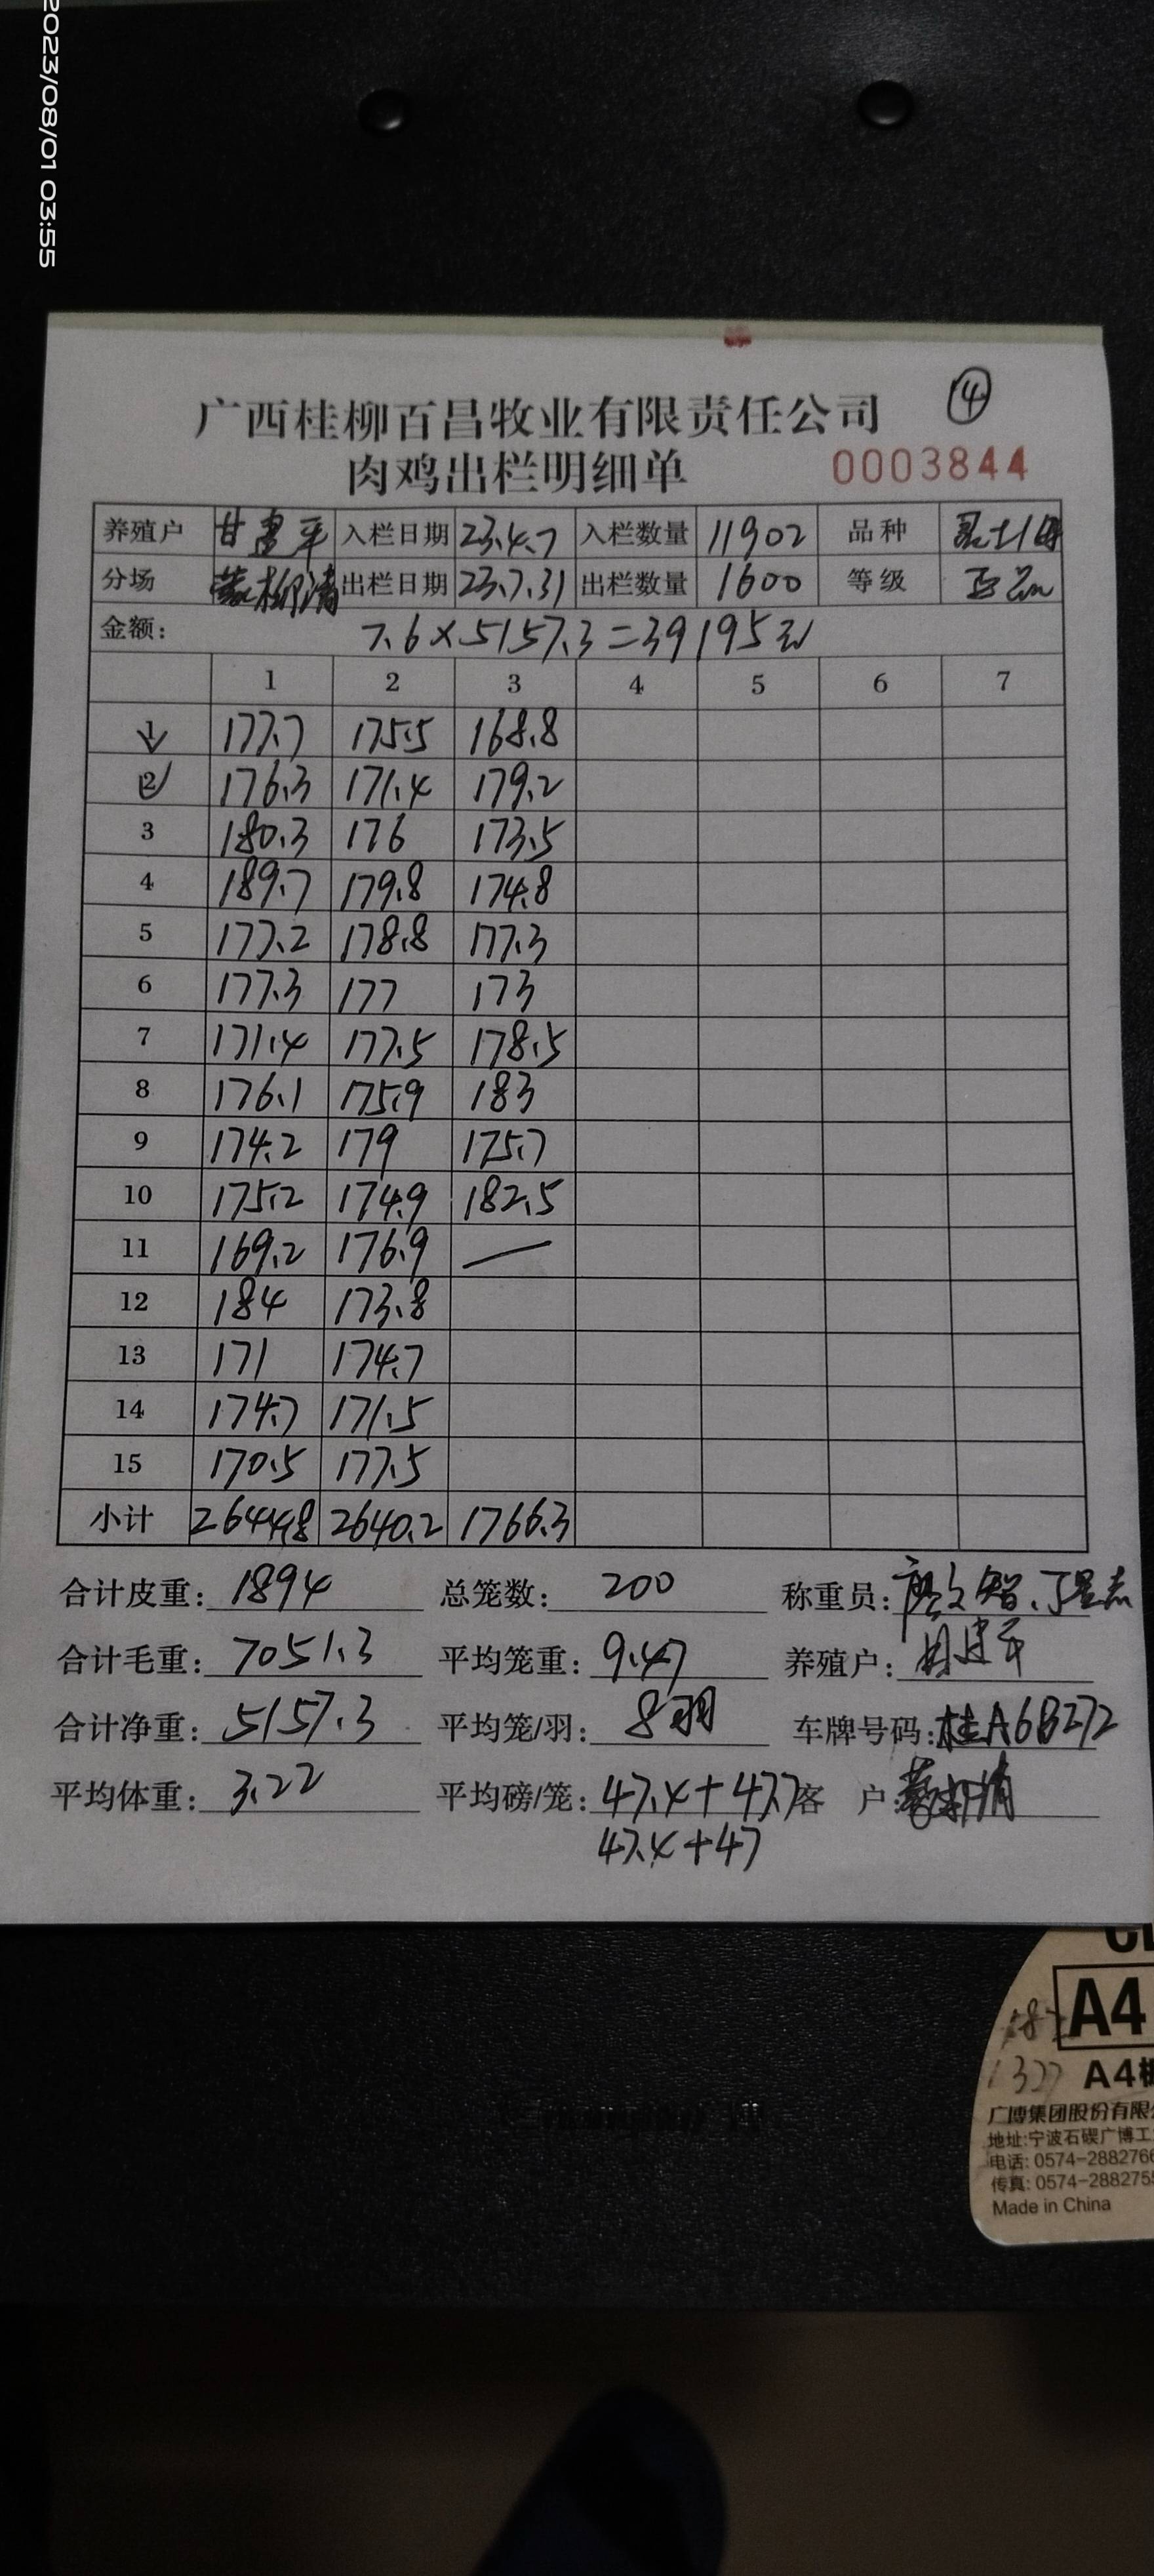 2023/08/01 03:55
④
广西桂柳百昌牧业有限责任公司
肉鸡出栏明细单 0003844
养殖户 甘 平 入栏日期 23.4.7 入栏数量 11902 品种
分场 柳清 出栏日期 23.7.31 出栏数量 1600 等级
金额: 7.6×5157.3=39195元
1 2 3 4 5 6 7
1 177.7 175.5 168.8
2 176.3 171.4 179.2
3 180.3 176 173.5
4 189.7 179.8 174.8
5 177.2 178.8 177.3
6 177.3 177 173
7 171.4 177.5 178.5
8 176.1 175.9 183
9 174.2 179 175.7
10 175.2 174.9 182.5
11 169.2 176.9 —
12 184 173.8
13 171 174.7
14 174.7 171.5
15 170.5 177.5
小计 2644.8 2640.2 1766.3
合计皮重: 1894 总笼数: 200 称重员:
合计毛重: 7051.3 平均笼重: 9.47 养殖户:
合计净重: 5157.3 平均笼/羽: 8羽 车牌号码: 桂A6B272
平均体重: 3.22 平均磅/笼: 47.4+47.7 客 户:
47.4+47
A4
1327 A4
广博集团股份有限
地址:宁波石碶广博工
电话: 0574-2882766
传真: 0574-2882755
Made in China